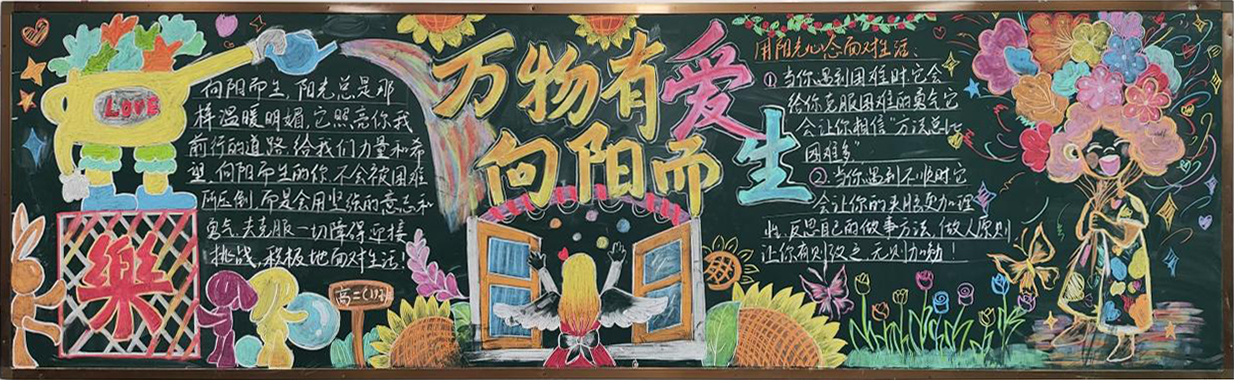 LOVE
向阳而生,阳光总是那
样温暖明媚,它照亮你我
前行的道路.给我们力量和希
望.向阳而生的你,不会被困难
所压倒,而是会用坚强的意志和
勇气.去克服一切障碍迎接
挑战,积极地面对生活!
樂
高二
万物有爱
向阳而生
用阳光心态面对生活:
①当你遇到困难时它会
给你克服困难的勇气它
会让你相信"方法总比
困难多"
②当你遇到不顺时它
会让你的头脑更加理
性,反思自己的做事方法、做人原则
让你有则改之,无则加勉!